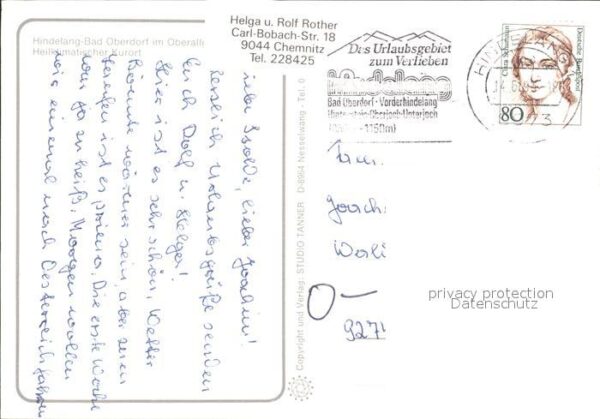 Hindelang-Bad Oberdorf im Oberallg
Heilklimatischer Kurort
Helga u. Rolf Rother
Carl-Bobach-Str. 18
9044 Chemnitz
Tel. 228425
Liebe Isolde, lieber Joachim!
Herzlich Urlaubsgrüße senden
Euch Rolf u. Helga!
Hier ist es sehr schön. Wetter
könnte wärmer sein, aber zum
ist es prima. Die erste Woche
war ja zu heiß. Morgen wollen
wir einmal nach Oesterreich fahren
Copyright und Verlag: STUDIO TANNER · D-8964 Nesselwang · Tel. 0
Das Urlaubsgebiet
zum Verlieben
Hindelang
Bad Oberdorf · Vorderhindelang
Hinterstein·Oberjoch·Unterjoch
1150m)
HINDELANG
Clara Schumann
Deutsche Bundespost
80
Fam.
Joach.
O–
927
privacy protection
Datenschutz